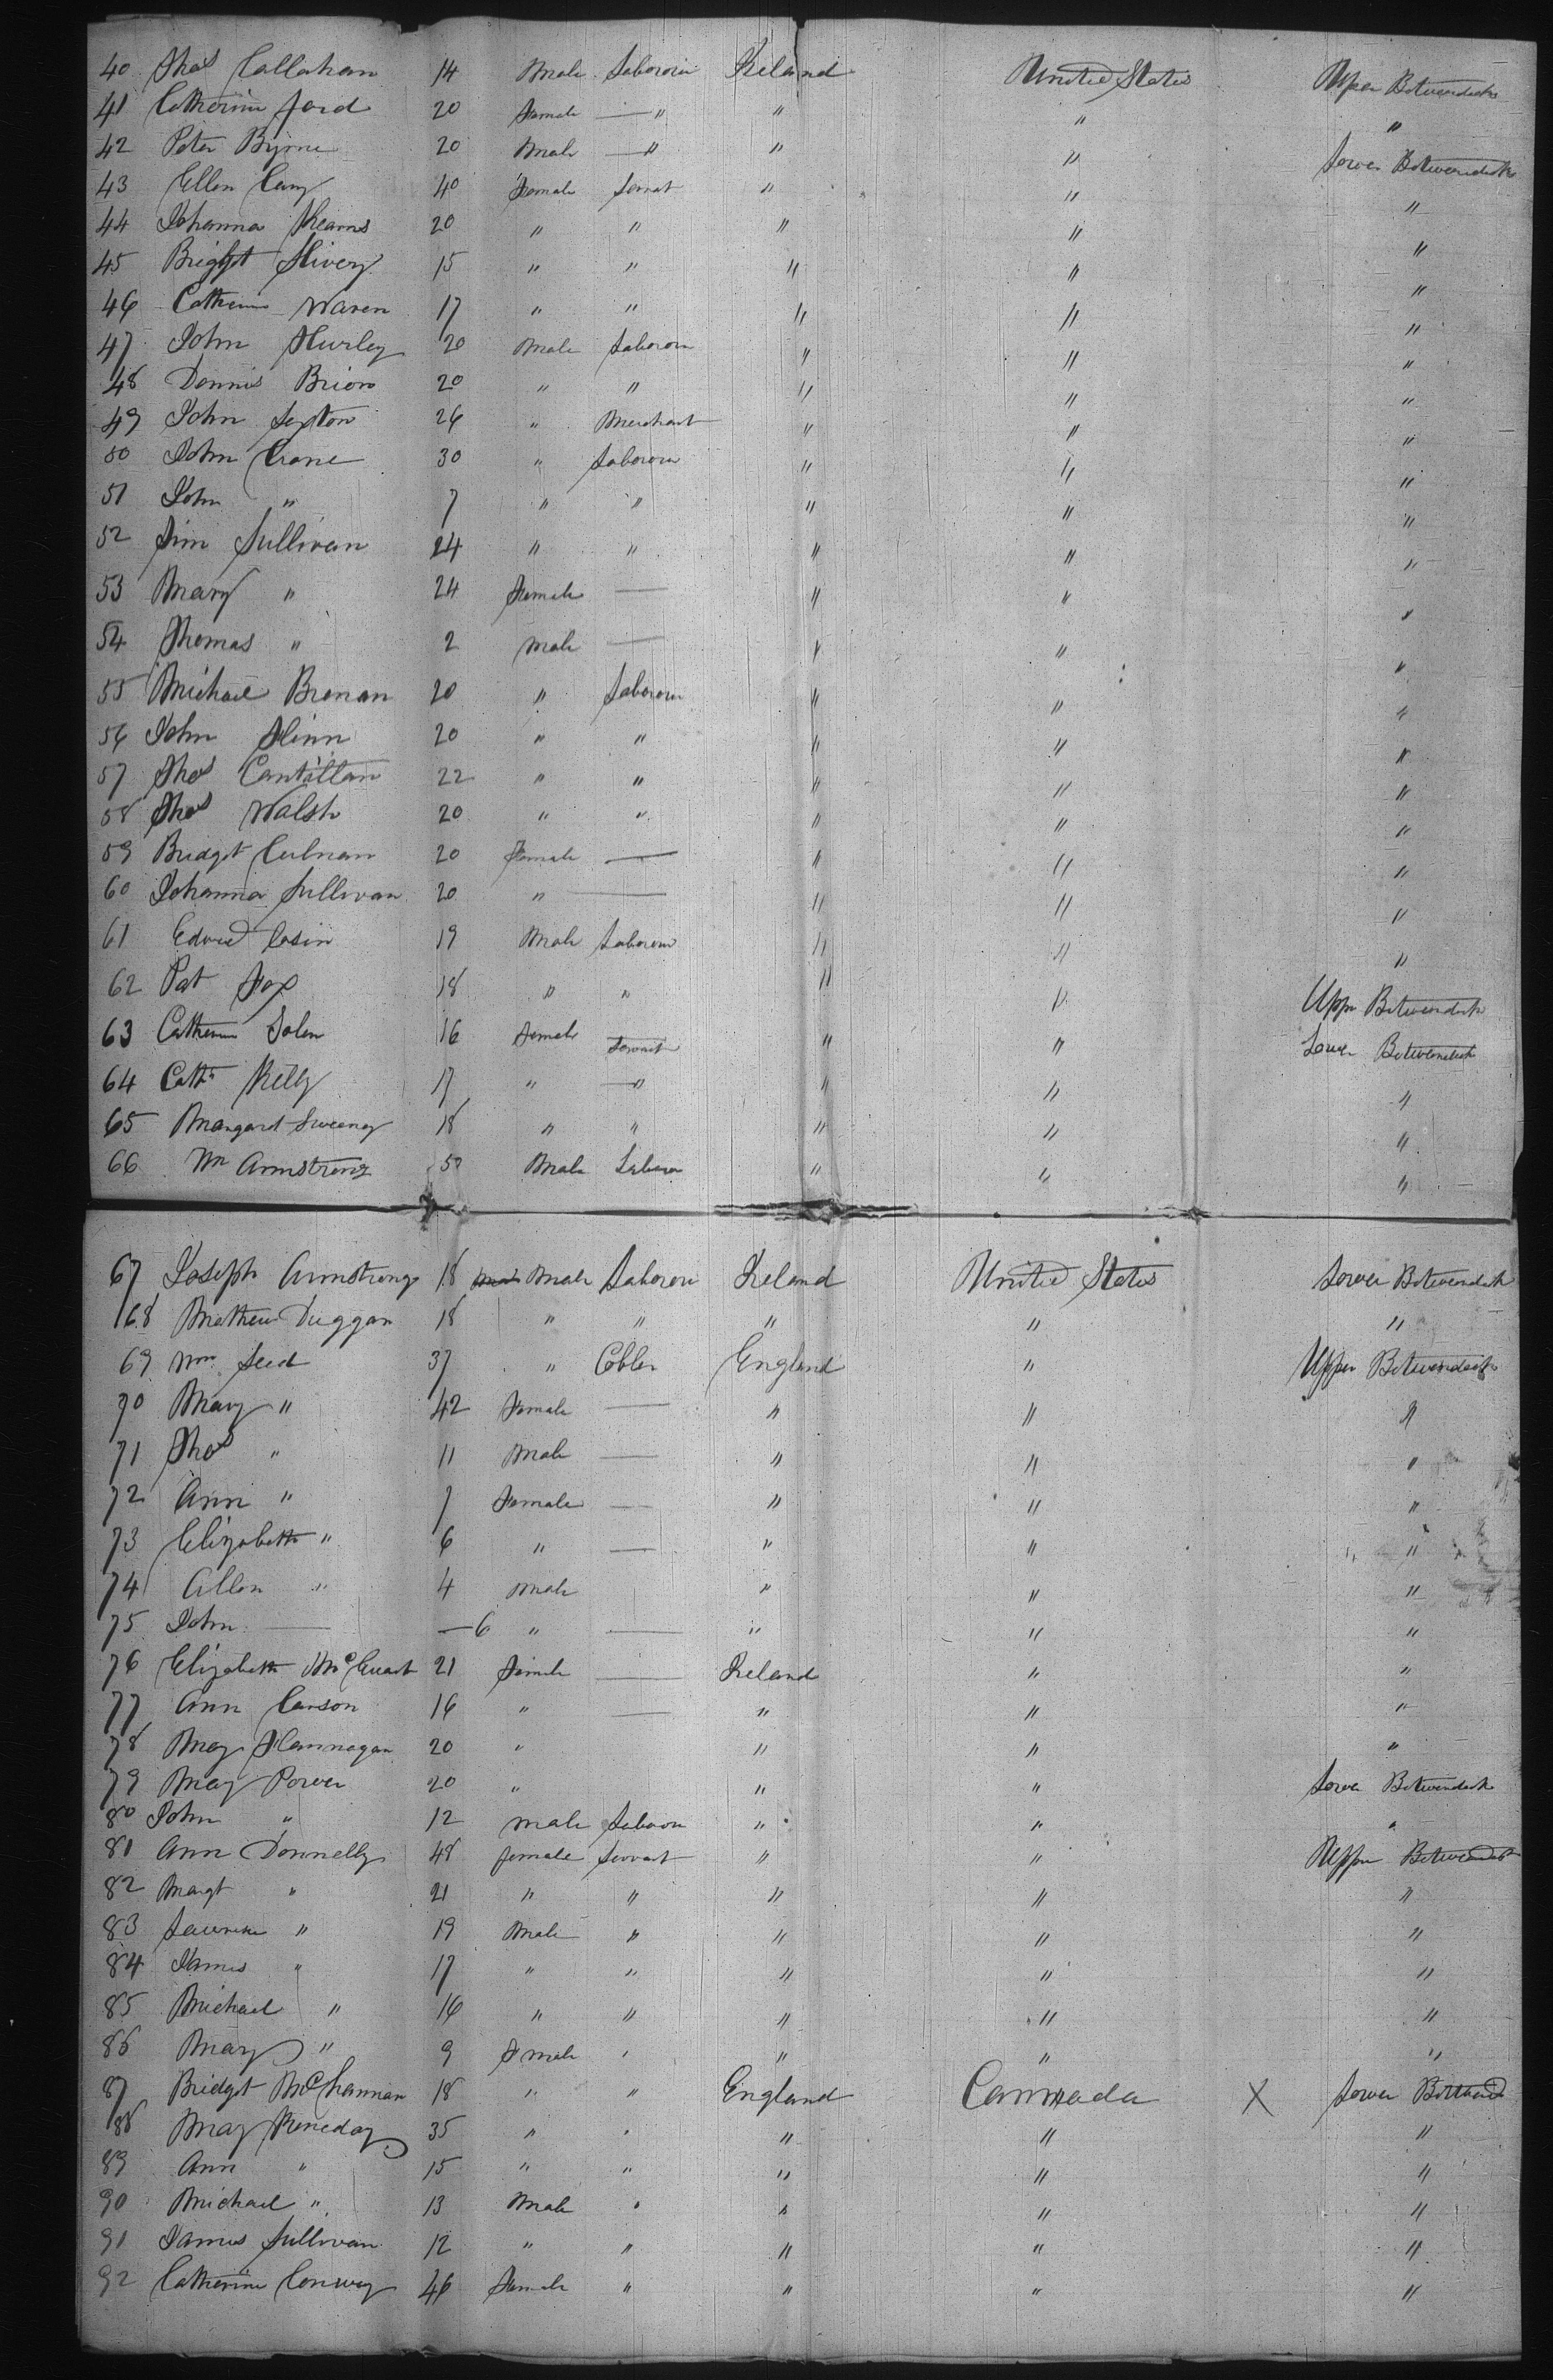 40 Thos Callahan 14 Male Laborour Ireland United States Upper Betweendecks
41 Catherine Ford 20 Female — " " " "
42 Peter Byrne 20 Male — " " " Lower Betweendecks
43 Ellen Cary 40 Female Servat " " "
44 Johanna Kearns 20 " " " " "
45 Bright Slivery 15 " " " " "
46 Catherine Waren 17 " " " " "
47 John Hurley 20 Male Laborour " " "
48 Dennis Brion 20 " " " " "
49 John Sexton 26 " Merchant " " "
50 John Crane 30 " Laborour " " "
51 John " 7 " " " " "
52 Jim Sullivan 24 " " " " "
53 Mary " 24 Female — " " "
54 Thomas " 2 Male — " " "
55 Michael Brenan 20 " Laborour " " "
56 John Flinn 20 " " " " "
57 Thos Cantillan 22 " " " " "
58 Thos Walsh 20 " " " " "
59 Bridget Culnan 20 Female — " " "
60 Johanna Sullivan 20 " — " " "
61 Edwd Casin 19 Male Laborour " " "
62 Pat Fox 18 " " " " Upper Betweendeck
63 Catherine Tolen 16 Female Servant " " Lower Betweendeck
64 Cath Kelly 17 " — " " " "
65 Mangard Sweeney 18 " " " " "
66 Wm Armstrong 50 Male Labour " " "
67 Joseph Armstrong 18 Male Laborour Ireland United States Lower Betweendeck
68 Mathew Duggan 18 " " " " "
69 Wm Seed 37 " Cobler England " Upper Betweendeck
70 Mary " 42 Female — " " "
71 Thos " 11 Male — " " "
72 Ann " 7 Female — " " "
73 Elizabeth " 6 " — " " "
74 Allen " 4 Male " " "
75 John — — 6 " — " " "
76 Elizabeth 21 Female — Ireland " "
77 Ann Carson 16 " — " " "
78 May Flannagan 20 " " " "
79 May Power 20 " " " Lower Betweendeck
80 John " 12 male Labour " " "
81 Ann Donnelly 48 female Servant " " Upper Betweendeck
82 Margt " 21 " " " " "
83 Laurence " 19 Male " " " "
84 James " 17 " " " " "
85 Michael " 16 " " " " "
86 Mary " 9 Female " " " "
87 Bridget McChannan 18 " " England Cannada X Lower
88 May Keneday 35 " " " " "
89 Ann " 15 " " " " "
90 Michael " 13 Male " " " "
91 James Sullivan 12 " " " " "
92 Catherine Conway 46 Female " " " "